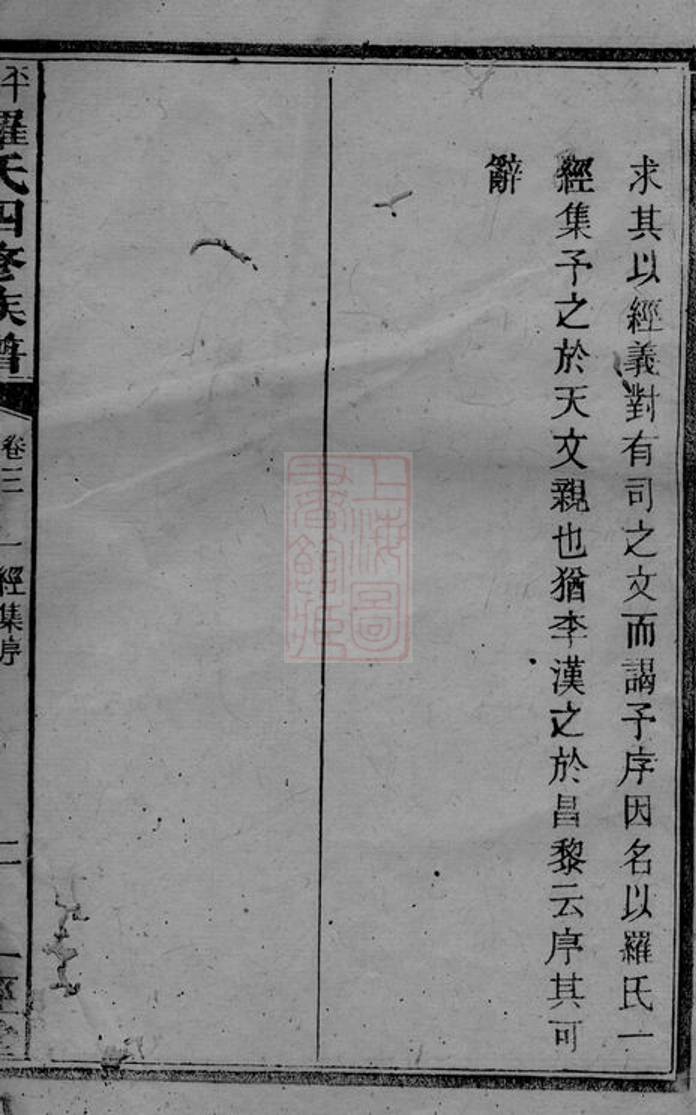 求其以經義對有司之文而謁予序因名以羅氏一
經集予之於天文親也猶李漢之於昌黎云序其可
辭
平羅氏四修族譜
卷三
一經集序
二
一經堂
上海圖書館藏